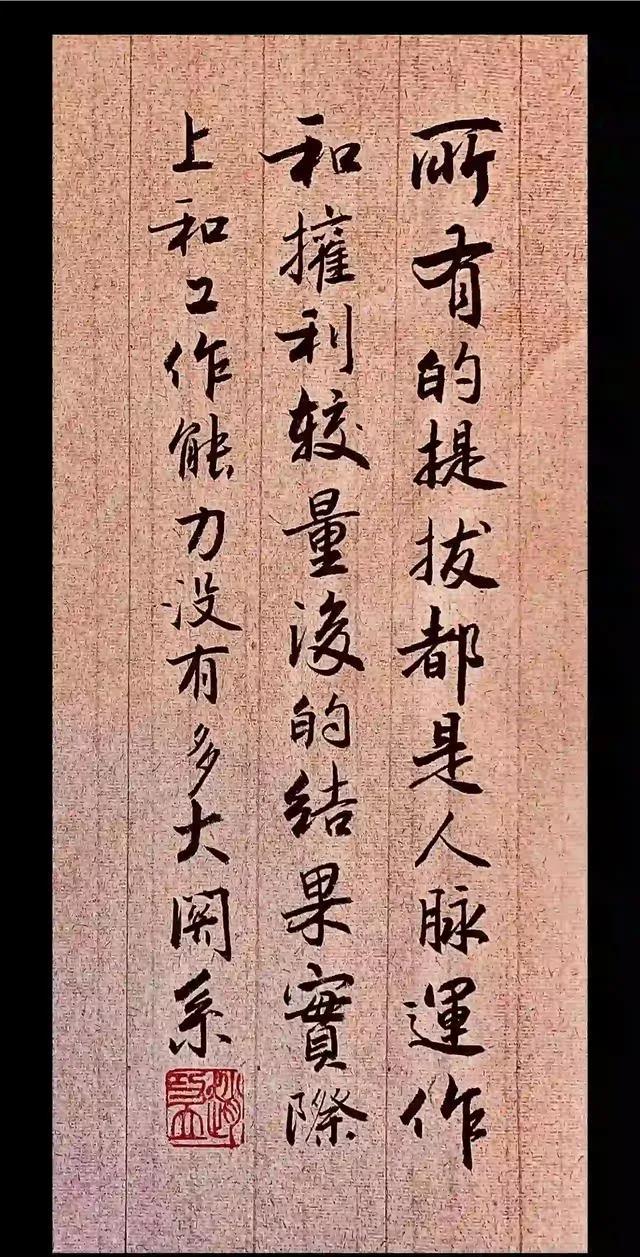 所有的提拔都是人脉運作
和權利較量後的结果實際
上和工作能力没有多大関系